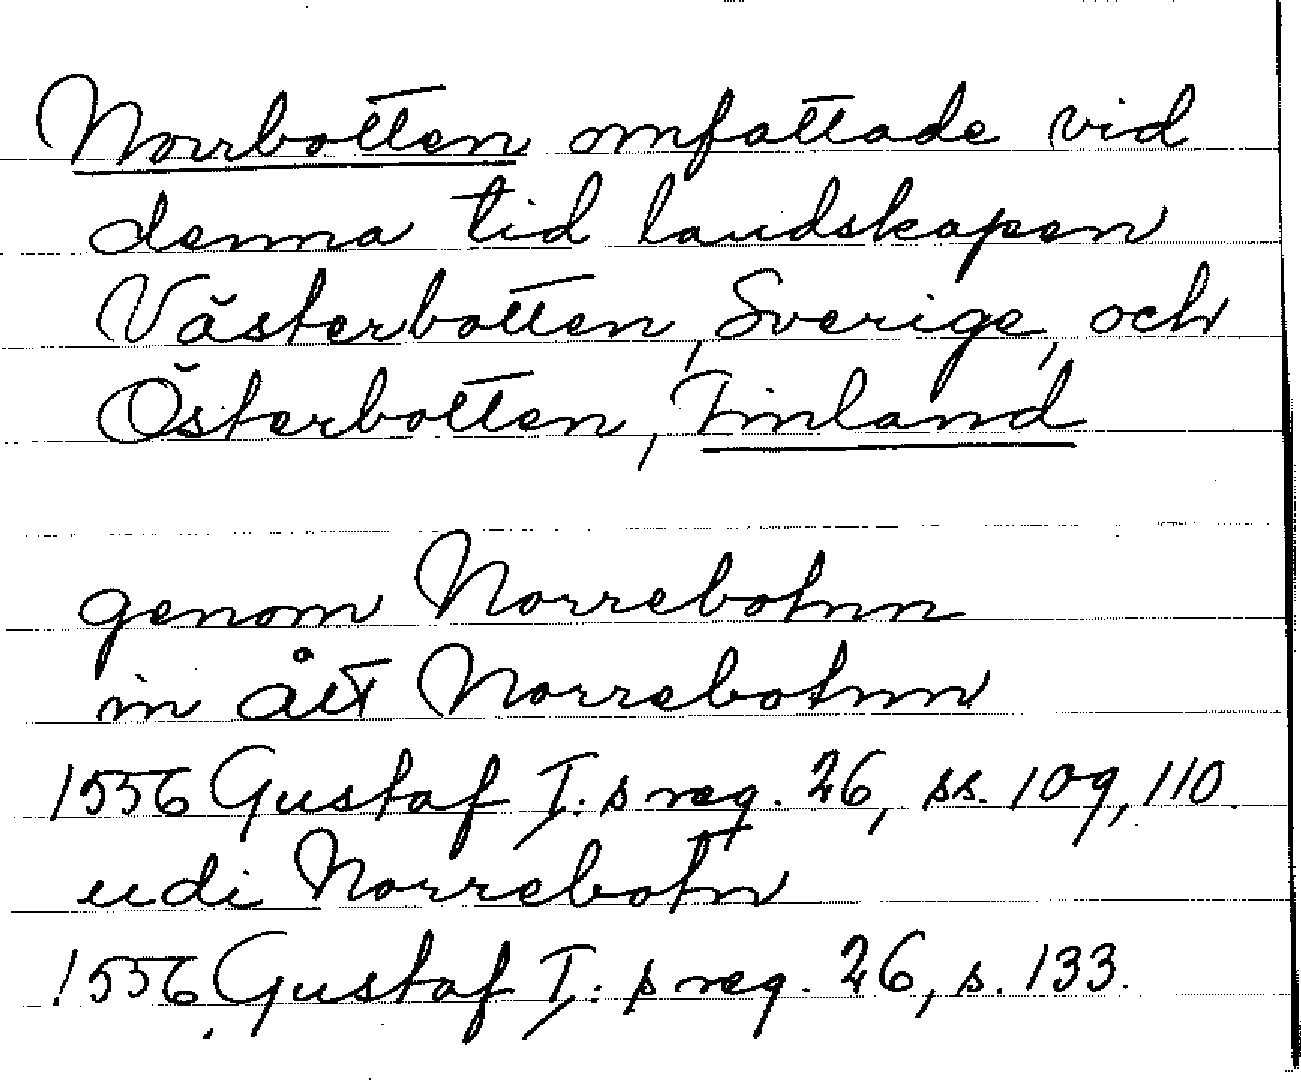 Norrbotten omfattade vid
denna tid landskapen
Västerbotten, Sverige, och
Österbotten, Finland
genom Norrebotnn
in ått Norrebotnn
1556 Gustaf I:s reg. 26, ss. 109, 110.
udi Norrebotn
1556 Gustaf I:s reg. 26, s. 133.